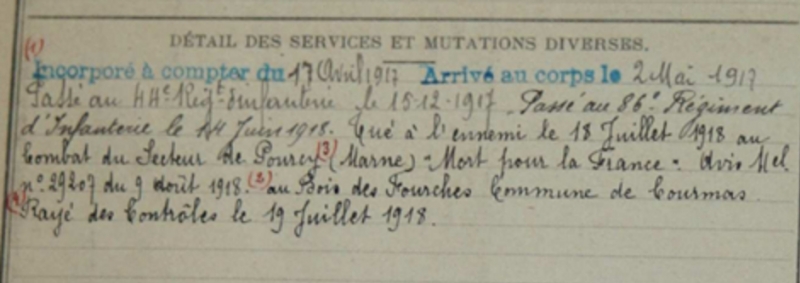 DÉTAIL DES SERVICES ET MUTATIONS DIVERSES.
(1)
Incorporé à compter du 17 Avril 1917 Arrivé au corps le 2 Mai 1917
Passé au 44e Régt d'infanterie le 15-12-1917. Passé au 86e Régiment
d'Infanterie le 14 Juin 1918. Tué à l'ennemi le 18 Juillet 1918 au
Combat du Secteur de Pourcy (3) (Marne) - Mort pour la France - Avis Mel.
n° 29207 du 9 Août 1918. (2) au Bois des Fourches Commune de Courmas.
Rayé des Contrôles le 19 Juillet 1918.